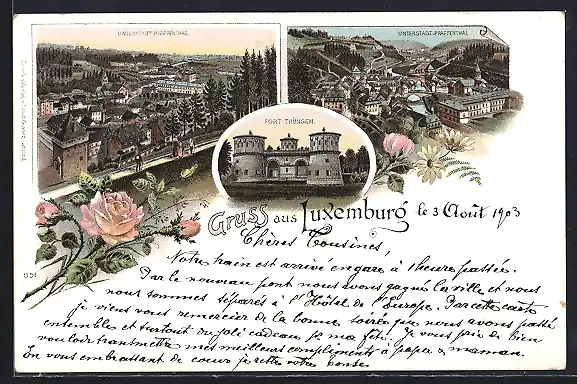 UNTERSTADT-PFAFFENTHAL.
UNTERSTADT-PFAFFENTHAL
FORT THÜNGEN.
Gruss aus Luxemburg le 3 Août 1903
Chères Cousines,
Notre train est arrivé en gare à 1 heure passée.
Par le nouveau pont nous avons gagné la ville et nous
nous sommes séparés à l'Hôtel de l'Europe. Par cette carte
je viens vous remercier de la bonne soirée que nous avons passé
ensemble et surtout du joli cadeau pr ma fête. Je vous prie de bien
vouloir transmettre mes meilleurs compliments à papa & maman.
En vous embrassant de coeur je reste votre
951